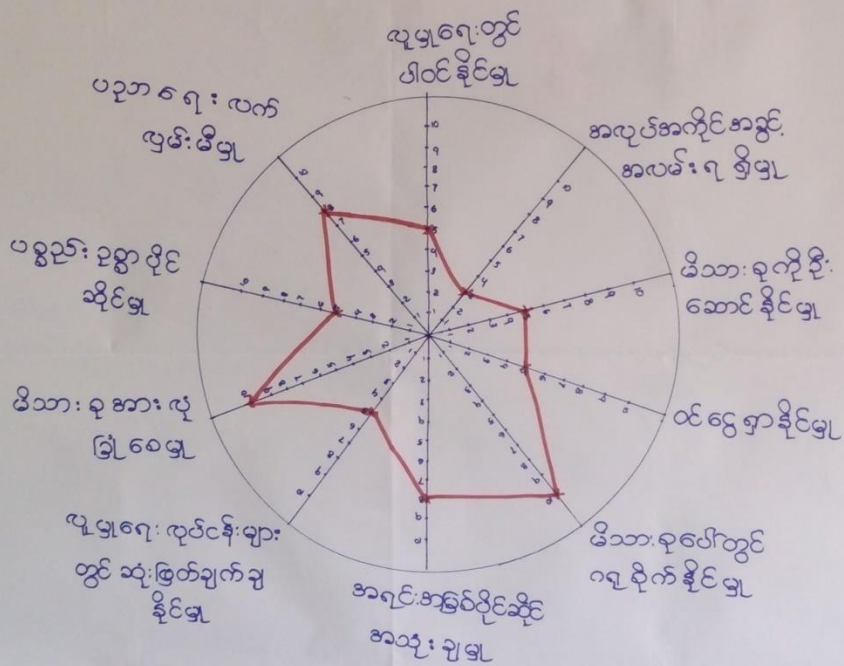 လူမှုရေးတွင်
ပါဝင်နိုင်မှု
အလုပ်အကိုင်အခွင့်
အလမ်းရရှိမှု
မိသားစုကိုဦး
ဆောင်နိုင်မှု
ဝင်ငွေရှာနိုင်မှု
မိသားစုပေါ်တွင်
ဂရုစိုက်နိုင်မှု
အရင်းအမြစ်ပိုင်ဆိုင်
အသုံးချမှု
လူမှုရေးလုပ်ငန်းများ
တွင် ဆုံးဖြတ်ချက်ချ
နိုင်မှု
မိသားစုအားလုံ
ခြုံစေမှု
ပစ္စည်းဥစ္စာပိုင်
ဆိုင်မှု
ပညာရေးလက်
လှမ်းမီမှု